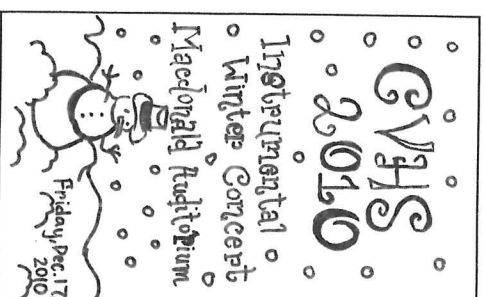 GVHS
2010
Instrumental
Winter Concert
Macdonald Auditorium
Friday, Dec. 17
2010